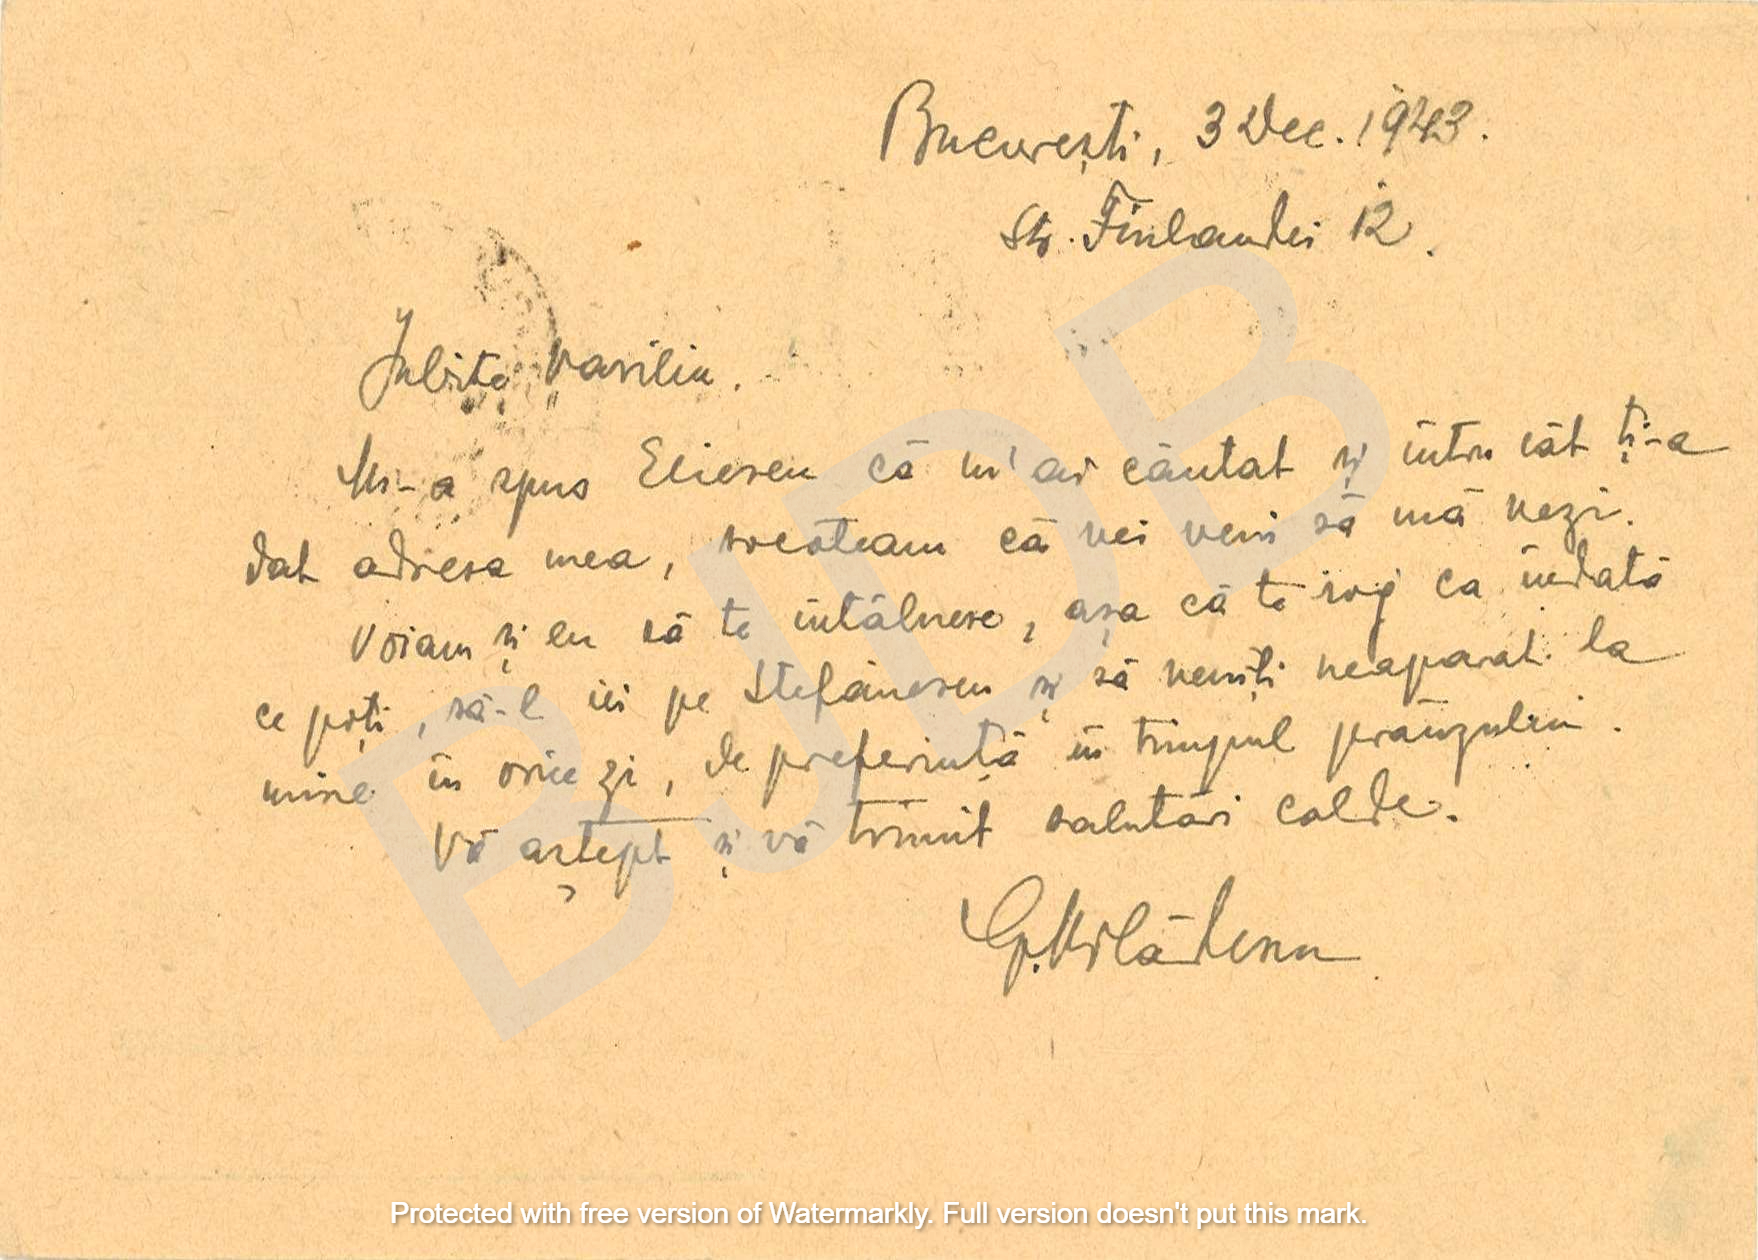 București, 3 Dec. 1943.
Str. Finlandei 12.
Iubite Vasiliu.
Mi-a spus Eliescu că m'ai căutat și întru cât ți-a
dat adresa mea, socoteam că vei veni să mă vezi.
Voiam și eu să te întâlnesc, așa că te rog ca îndată
ce poți, să-l iei pe Ștefănescu și să veniți neapărat la
mine în orice zi, de preferință în timpul prânzului.
Vă aștept și vă trimit salutări calde.
BJDB
Protected with free version of Watermarkly. Full version doesn't put this mark.